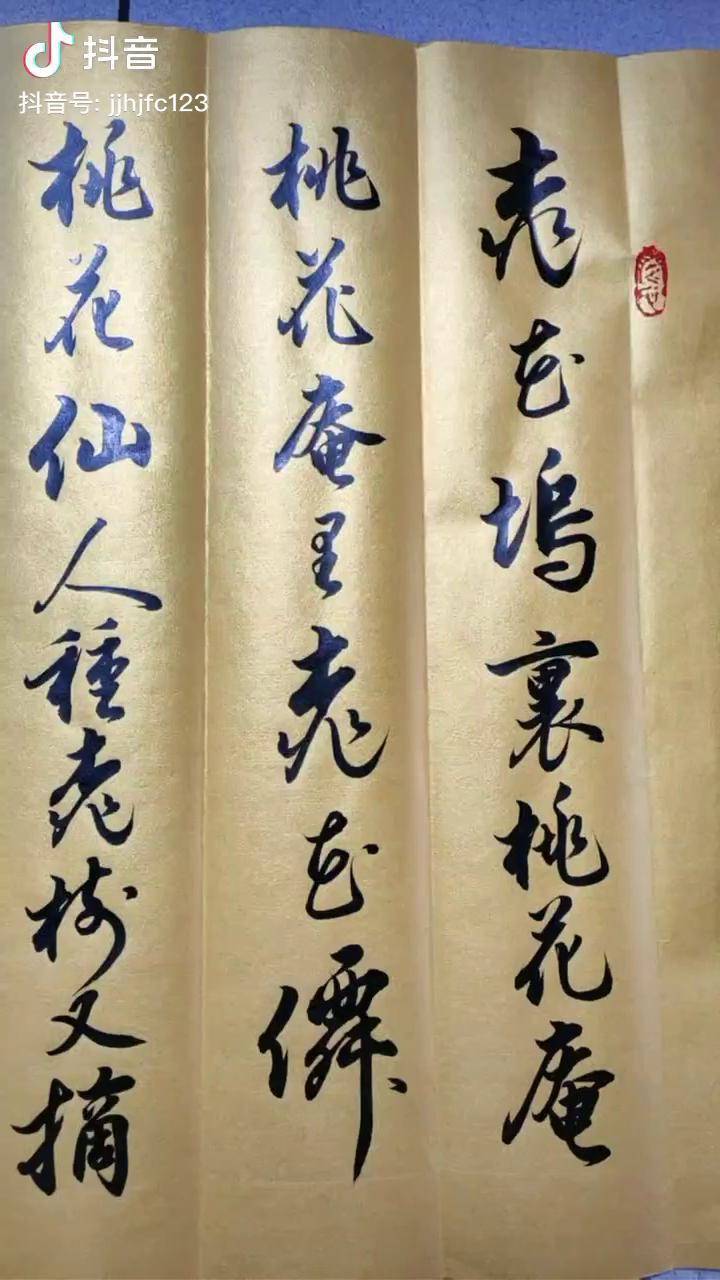 抖音
抖音号: jjhjfc123
桃花塢裏桃花庵
桃花庵里桃花僊
桃花仙人種桃树又摘